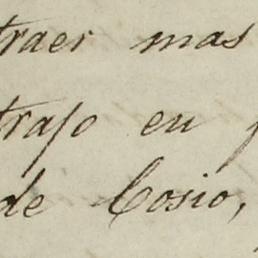 traer mas
trajo en
de Cosio,